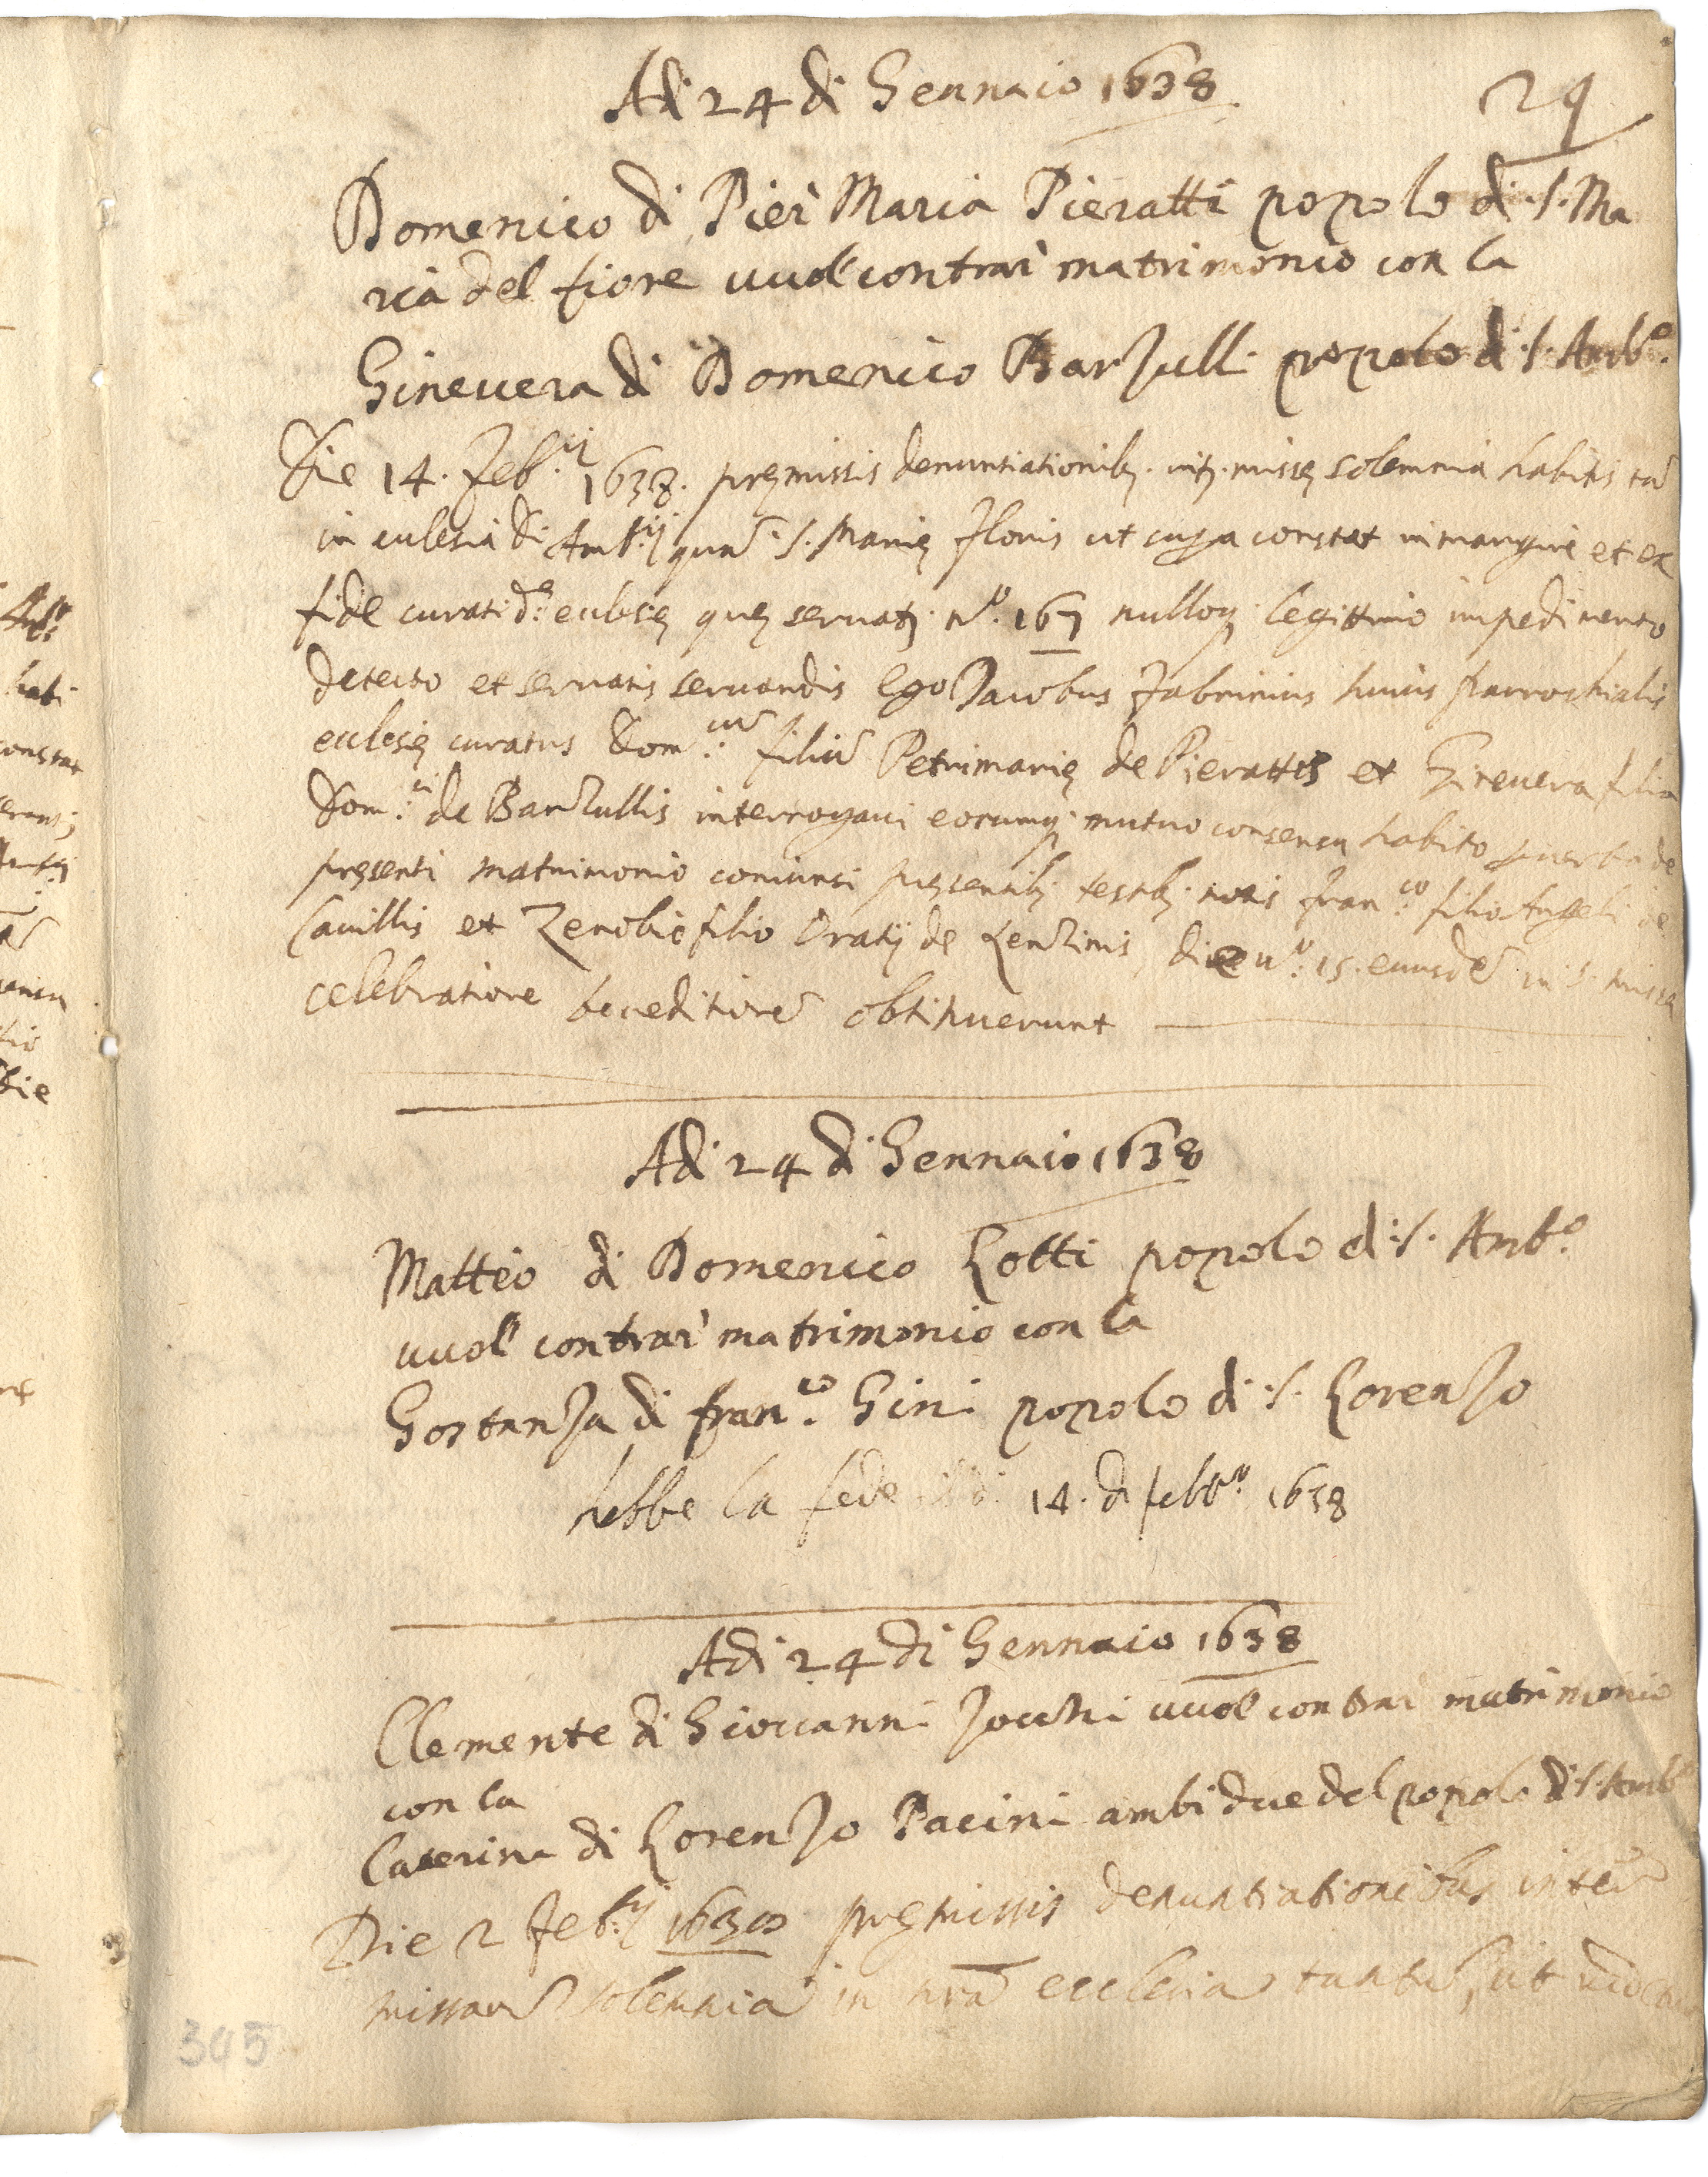 Adi 24 di Gennaio 1638
29
Domenico di Pier Maria Pieratti popolo di S. Ma
ria del fiore vuol contrar matrimonio con la
Ginevera di Domenico Barzulli popolo di S. Amb.o
Die 14. Feb.ij 1638. premissis denuntiationib. int. misse solemnia habitis ta
in eclesia S.ti Amb.ij qua S. Marie Floris ut supra constat in margine et ex
fide curati d.e eclesie que servat. n.o 167 nulloq. legittimo impedimento
detecto et servatis servandis Ego Jacobus Fabrinius huius parrochialis
eclesie curatus Dom.cu filiu Petrimarie de Pierattis et Ginevera filia
Dom.ci de Barzullis interrogavi eorumq. mutuo consensu habito p verba de
presenti matrimonio coniunxi presentib. testib. notis Fran.co filio Angeli de
Camillis et Zenobio filio Oratij de Lenzinis, die v.o 15. eiusde in S. misse
celebratione beneditione obtinuerunt
Adi 24 di Gennaio 1638
Matteo di Domenico Lotti popolo di S. Amb.o
vuol contrar matrimonio con la
Gostanza di fran.co Gini popolo di S. Lorenzo
hebbe la fede 14. di febb.o 1638
Adi 24 di Gennaio 1638
Clemente di Giovanni Zocchi vuol contrar matrimonio
con la
Caterina di Lorenzo Pacini ambi due del popolo di S. Amb
Die 2 Feb.ij 1638 premissis denuntiationibus inter
missaru solemnia in nra ecclesia tantu, ut
345